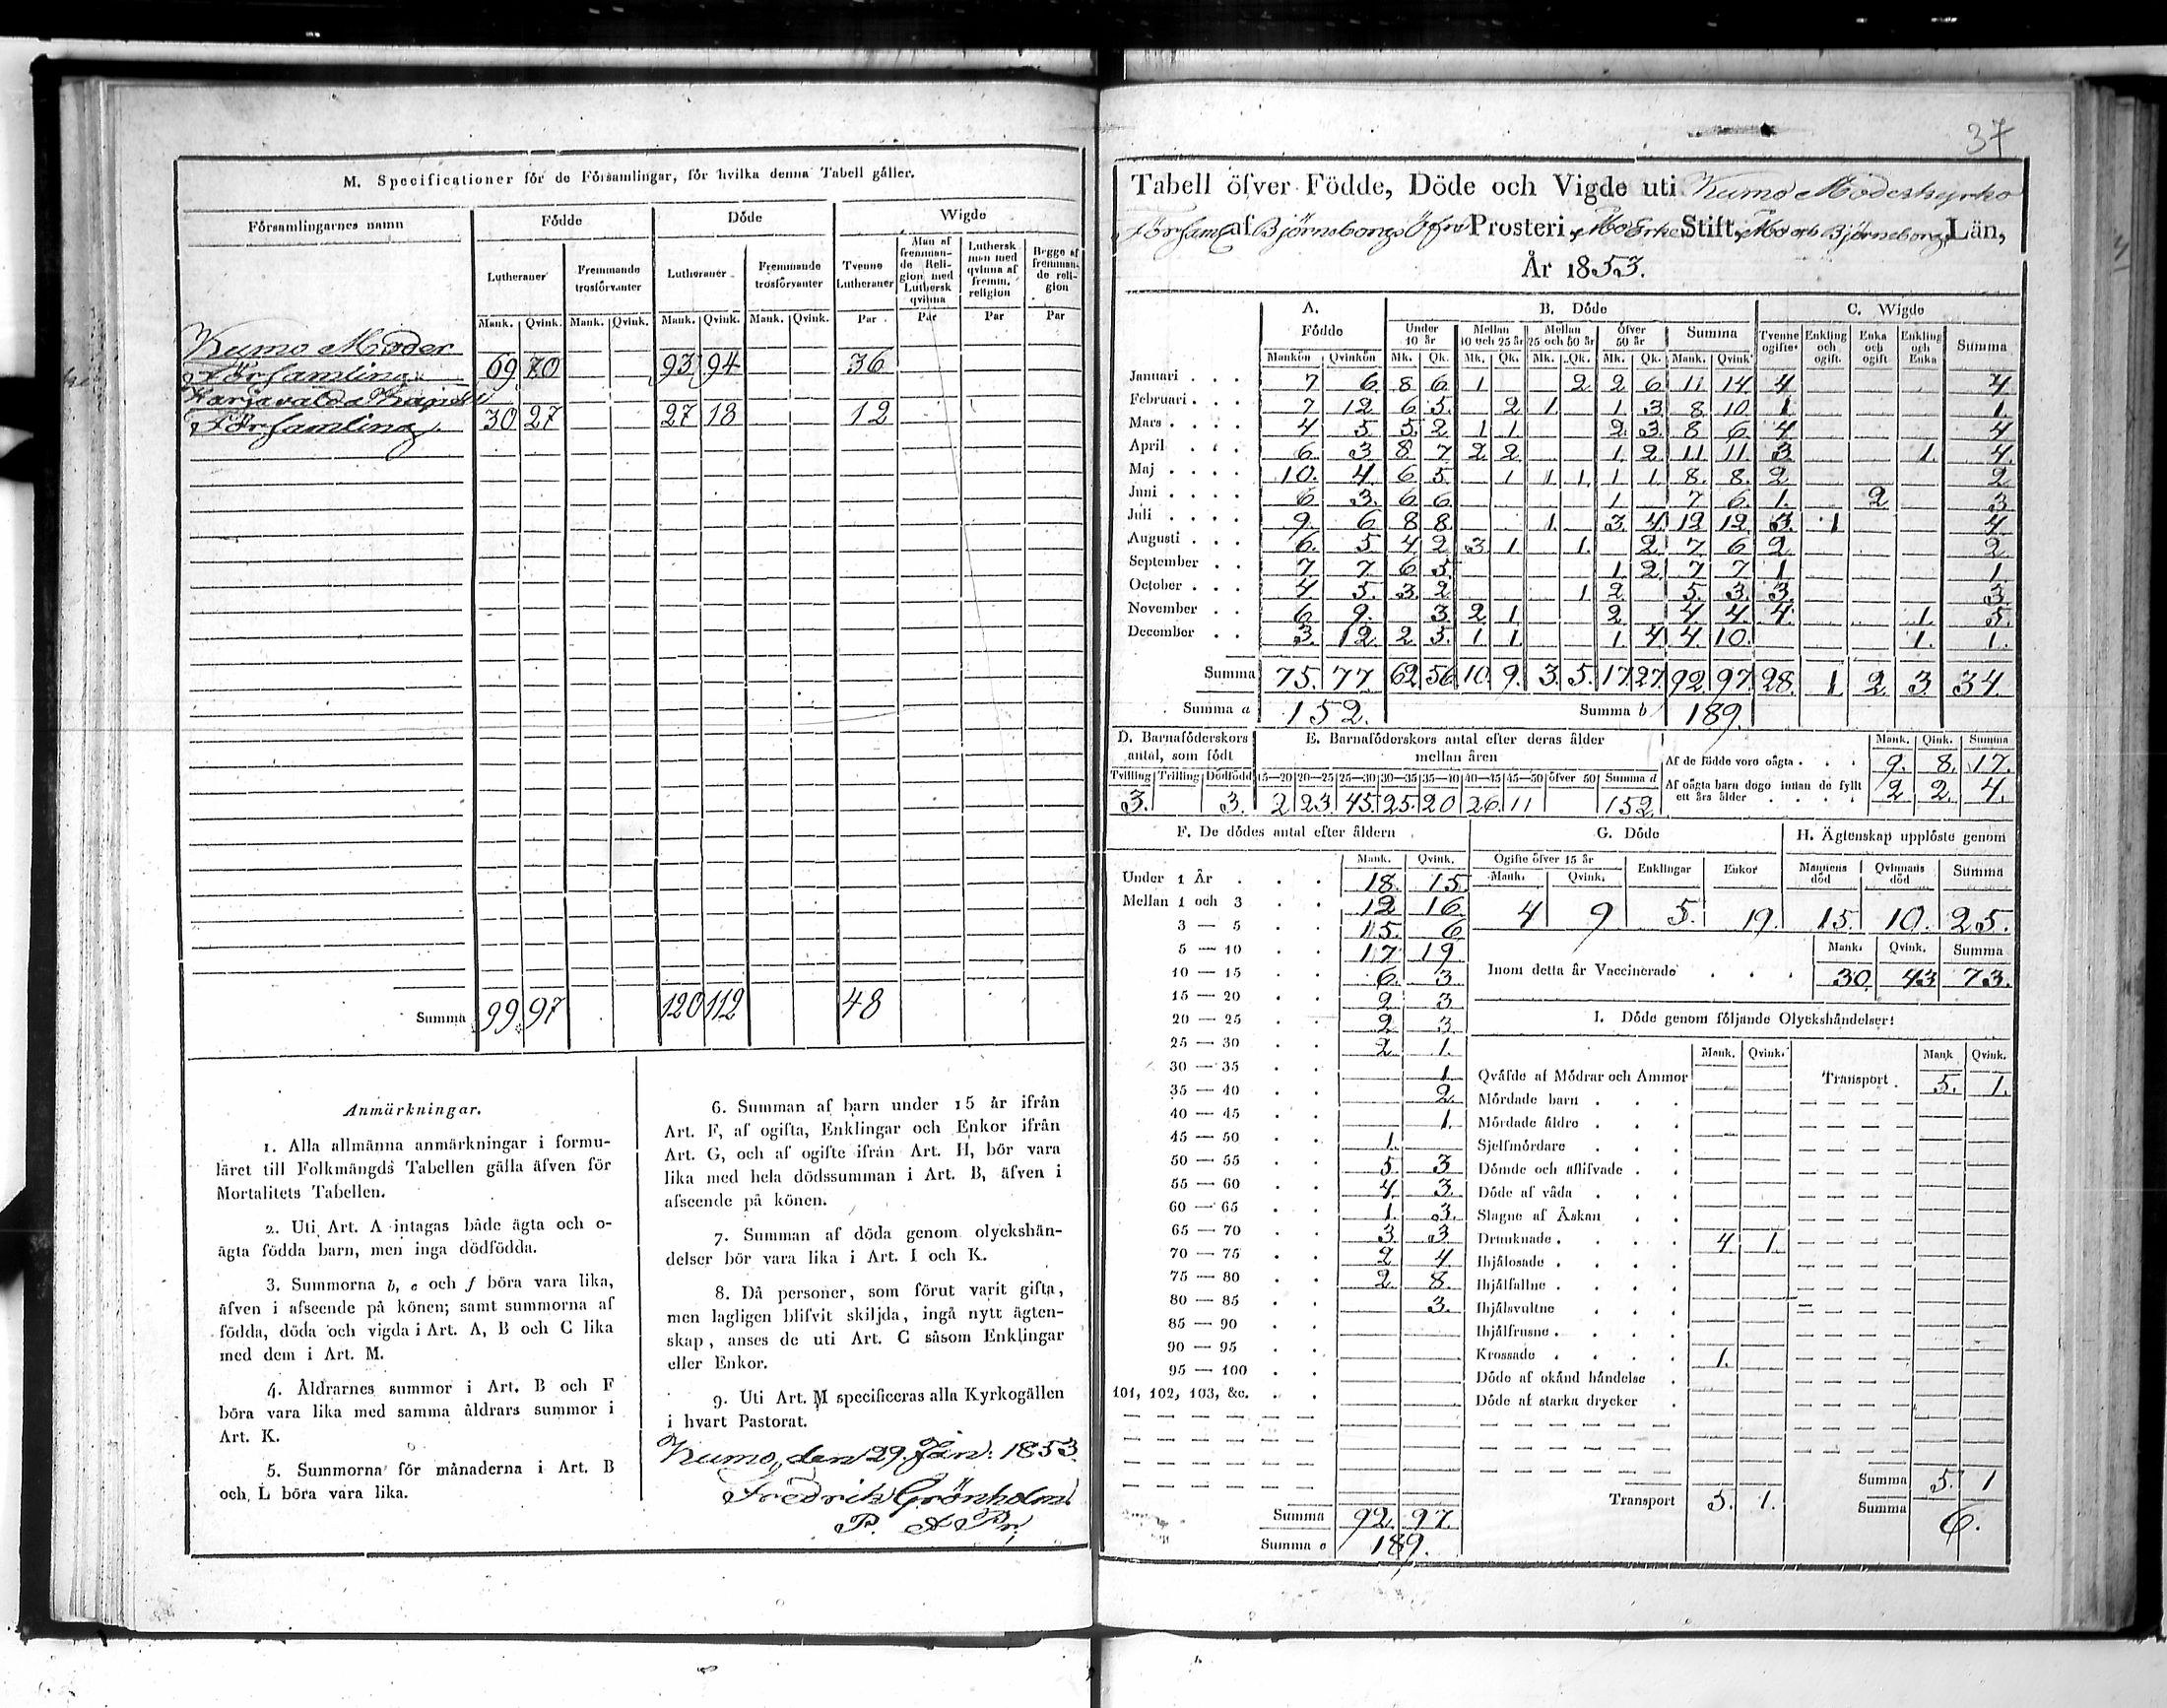 M. Specificationer för de Församlingar, för hvilka denna Tabell gäller.
Församlingarnes namn Födde Döde Wigde
Lutheraner Fremmande trosförvanter Lutheraner Fremmande trosförvanter Tvenne Lutheraner Man af fremmande Religion med Luthersk qvinna Luthersk man med qvinna af fremm. religion Begge af fremmande religion
Mank. Qvink. Mank. Qvink. Mank. Qvink. Mank. Qvink. Par Par Par Par
Kumo Moder
Församling 69 70 93 94 36
Harjavalda Kapell
Församling 30 27 27 18 12
Summa 99 97 120 112 48
Anmärkningar.
1. Alla allmänna anmärkningar i formu-
läret till Folkmängds Tabellen gälla äfven för
Mortalitets Tabellen.
2. Uti Art. A intagas både ägta och o-
ägta födda barn, men inga dödfödda.
3. Summorna b, e och f böra vara lika,
äfven i afseende på könen; samt summorna af
födda, döda och vigda i Art. A, B och C lika
med dem i Art. M.
4. Åldrarnes summor i Art. B och F
böra vara lika med samma åldrars summor i
Art. K.
5. Summorna för månaderna i Art. B
och L böra vara lika.
6. Summan af barn under 15 år ifrån
Art. F, af ogifta, Enklingar och Enkor ifrån
Art. G, och af ogifte ifrån Art. H, bör vara
lika med hela dödssumman i Art. B, äfven i
afseende på könen.
7. Summan af döda genom olyckshän-
delser bör vara lika i Art. I och K.
8. Då personer, som förut varit gifta,
men lagligen blifvit skiljda, ingå nytt ägten-
skap, anses de uti Art. C såsom Enklingar
eller Enkor.
9. Uti Art. M specificeras alla Kyrkogällen
i hvart Pastorat.
Kumo, den 29. Jan: 1853.
Fredrik Grönholm
P.
37
Tabell öfver Födde, Döde och Vigde uti Kumo Moderkyrko
Församl af Björneborgs Öfre Prosteri, Åbo Erke Stift, Åbo och Björneborgs Län,
År 1853.
A. B. Döde C. Wigde
Födde Under 10 år Mellan 10 och 25 år Mellan 25 och 50 år Öfver 50 år Summa Tvenne ogifte Enkling och ogift. Enka och ogift Enkling och Enka Summa
Mankön Qvinkön Mk. Qk. Mk. Qk. Mk. Qk. Mk. Qk. Mank. Qvink
Januari . . . 7 6 8 6 1 2 2 6 11 14 4 4
Februari . . . 7 12 6 5 2 1 1 3 8 10 1 1
Mars . . . . 4 5 5 2 1 1 2 3 8 6 4 4
April . . . 6 3 8 7 2 2 1 2 11 11 3 1 4
Maj . . . . 10 4 6 5 1 1 1 1 1 8 8 2 2
Juni . . . . 6 3 6 6 1 7 6 1 2 3
Juli . . . . 9 6 8 8 1 3 4 12 12 3 1 4
Augusti . . . 6 5 4 2 3 1 1 2 7 6 2 2
September . . 7 7 6 5 1 2 7 7 1 1
October . . . 4 5 3 2 1 2 5 3 3 3
November . . 6 9 3 2 1 2 4 4 4 1 5
December . . 3 12 2 5 1 1 1 4 4 10 1 1
Summa 75 77 62 56 10 9 3 5 17 27 92 97 28 1 2 3 34
Summa a 152. Summa b 189.
D. Barnaföderskors antal, som födt
Tvilling Trilling Dödfödd
3. 3.
E. Barnaföderskors antal efter deras ålder mellan åren
15—20 20—25 25—30 30—35 35—40 40—45 45—50 öfver 50 Summa d
2 23 45 25 20 26 11 152
Mank. Qink. Summa
Af de födde voro oägta . . . 9. 8. 17.
Af oägta barn dogo innan de fyllt ett års ålder . . . . 2 2 4.
F. De dödes antal efter åldern
Mank. Qvink.
Under 1 År . . . 18. 15
Mellan 1 och 3 . . 12 16
3 — 5 . . 15. 6
5 — 10 . . 17 19
10 — 15 . . 6 3
15 — 20 . . 2 3
20 — 25 . . 2 3
25 — 30 . . 2 1.
30 — 35 . . 1
35 — 40 . . 2
40 — 45 . . 1.
45 — 50 . . 1.
50 — 55 . . 5 3
55 — 60 . . 4 3.
60 — 65 . . 1. 3.
65 — 70 . . 3 3
70 — 75 . . 2 4
75 — 80 . . 2 8
80 — 85 . . 3.
85 — 90 . .
90 — 95 . .
95 — 100 . .
101, 102, 103, &c. . .
Summa 92 97.
Summa e 189.
G. Döde
Ogifte öfver 15 år Enklingar Enkor
Mank. Qvink.
4 9 5. 19.
H. Ägtenskap upplöste genom
Mannens död Qvinnans död Summa
15. 10. 25.
Mank. Qvink. Summa
Inom detta år Vaccinerade . . . . 30 43 73.
I. Döde genom följande Olyckshändelser:
Mank. Qvink. Mank Qvink.
Qväfde af Mödrar och Ammor Transport . 5. 1.
Mördade barn . . .
Mördade äldre . . .
Sjelfmördare . .
Dömde och aflifvade . .
Döde af våda . . .
Slagne af Åskan . .
Drunknade . . . . 4 1.
Ihjälosade . . . .
Ihjälfallne . . . .
Ihjälsvultne . . .
Ihjälfrusne . . . .
Krossade . . . . 1.
Döde af okänd händelse .
Döde af starka drycker .
Summa 5. 1
Transport 5. 1. Summa 6.